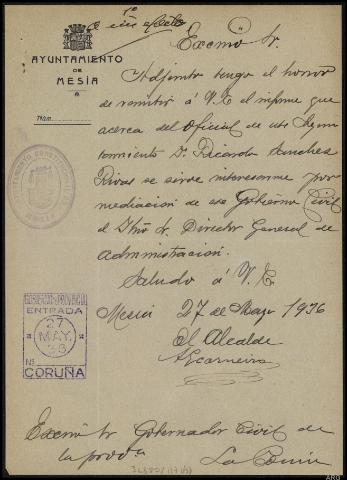 AYUNTAMIENTO
DE
MESÍA
Núm.
Excmo Sr.
Adjunto tengo el honor
de remitir á V. E. el informe que
acerca del Oficial de este Ayun
tamiento D. Ricardo Sanches
Rivas se sirve interesarme por
mediacion de ese Gobierno Civil
el Ilmo Sr. Director General de
Administración.
Saludo á V. E.
Mesia 27 de Mayo 1936
El Alcalde
GOBIERNO PROVINCIAL
ENTRADA
27
MAY.
36
Nº
CORUÑA
Excmo Sr Gobernador Civil de
la prov.a
La Coruña